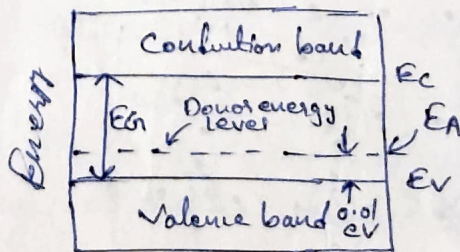 Conduction band
EC
Energy
EG
Donor energy
level
EA
EV
Valence band
0.01
eV